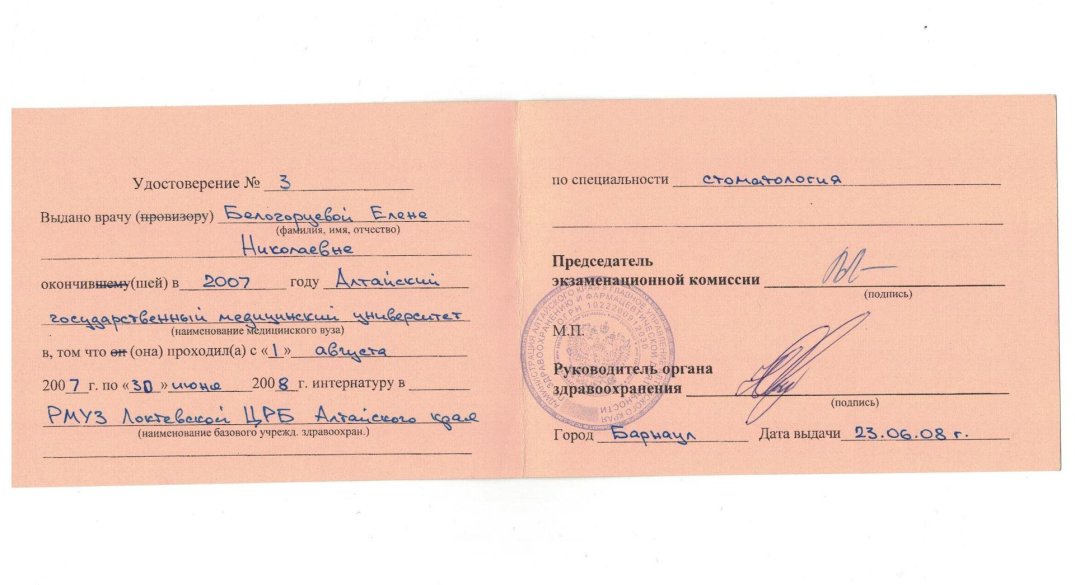 Удостоверение № 3
Выдано врачу (провизору) Белогорцевой Елене
(фамилия, имя, отчество)
Николаевне
окончившему(шей) в 2007 году Алтайский
государственный медицинский университет
(наименование медицинского вуза)
в, том что он (она) проходил(а) с «1» августа
2007 г. по «30» июня 2008 г. интернатуру в
РМУЗ Локтевской ЦРБ Алтайского края
(наименование базового учрежд. здравоохран.)
по специальности стоматология
Председатель
экзаменационной комиссии
(подпись)
М.П.
Руководитель органа
здравоохранения
(подпись)
Город Барнаул Дата выдачи 23.06.08 г.